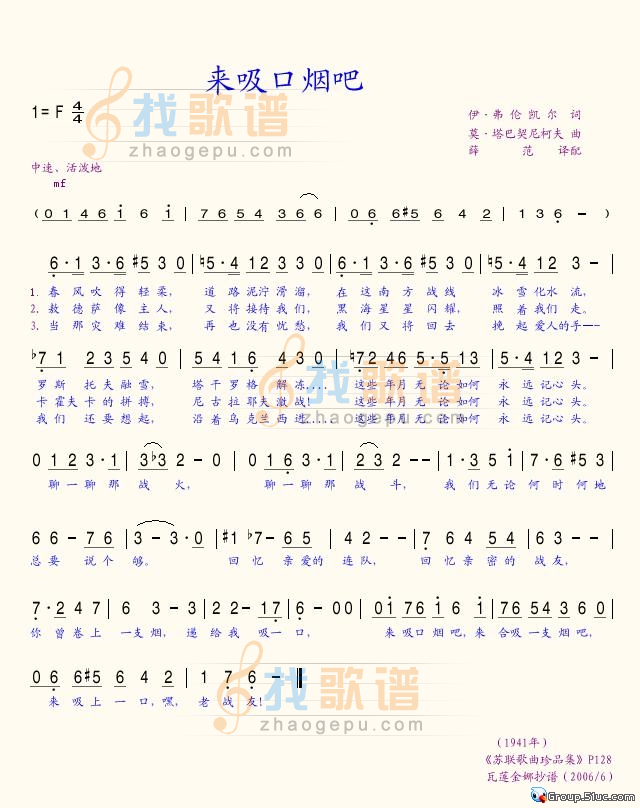 来吸口烟吧
1=F 4/4
伊·弗伦凯尔 词
莫·塔巴契尼柯夫 曲
薛 范 译配
中速、活泼地
mf
(0 1 4 6 i 6 i | 7 6 5 4 3 6 6 | 0 6 6 #5 6 4 2 | 1 3 6 -)
6·1 3·6 #5 3 0 | ♮5·4 1 2 3 3 0 | 6·1 3·6 #5 3 0 | ♮5·4 1 2 3 -|
1. 春风吹得轻柔, 道路泥泞滑溜, 在这南方战线 冰雪化水流,
2. 敖德萨像主人, 又将接待我们, 黑海星星闪耀, 照着我们走。
3. 当那灾难结束, 再也没有忧愁, 我们又将回去 挽起爱人的手——
♭7 1 2 3 5 4 0 | 2 4 6 4 3 0 | ♮7 2 4 6 5·5 1 3 | 5·4 3 - 0 |
罗斯托夫融雪, 塔干罗格解冻.... 这些年月无论如何 永远记心头。
卡霍夫卡的拼搏, 尼古拉耶夫激战! 这些年月无论如何 永远记心头。
我们还要想起, 沿着乌克兰西进.... 这些年月无论如何 永远记心头。
0 1 2 3·1 | 3 ♭3 2 - 0 | 0 1 6 3·1 | 2 3 2 - - | 1·3 5 i | 7·6 #5 3
聊一聊那战火, 聊一聊那战斗, 我们无论何时何地
6 6 - 7 6 | 3 - 3·0 | #1 ♭7 - 6 5 | 4 2 - - | 7 6 4 5 4 | 6 3 - -|
总要说个够。 回忆亲爱的连队, 回忆亲密的战友,
7·2 4 7 | 6 3 - 3 | 2 2 - 1 7 | 6 - 0 0 | 0 i 7 6 i 6 i | 7 6 5 4 3 6 0 |
你曾卷上一支烟, 递给我吸一口, 来吸口烟吧,来合吸一支烟吧,
0 6 6 #5 6 4 2 | 1 7 6 - ‖
来吸上一口,嘿,老战友!
(1941年)
《苏联歌曲珍品集》P128
瓦莲金娜抄谱(2006/6)
找歌谱
zhaogepu.com
找歌谱
zhaogepu.com
找歌谱
zhaogepu.com
Group.51uc.com